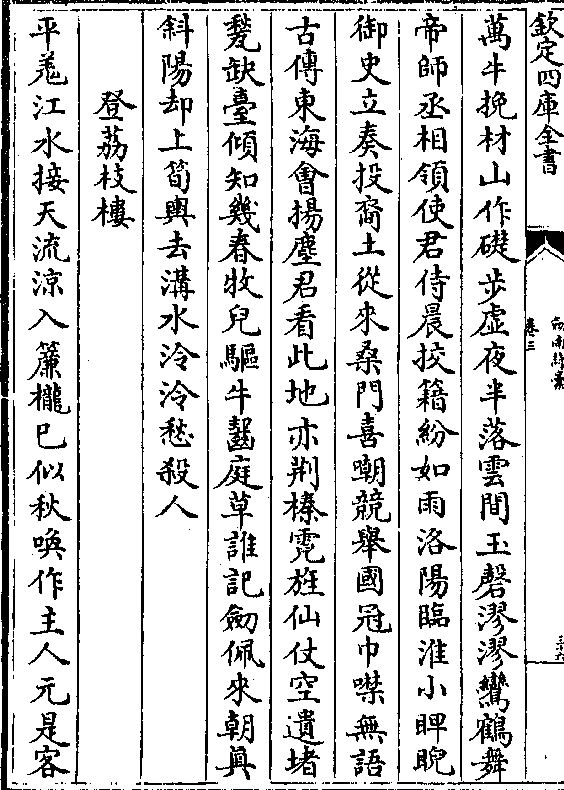 欽定四庫全書
卷三
萬牛挽材山作礎步虛夜半落雲間玉磬漻漻鸞鶴舞
帝師丞相領使君侍晨挍籍紛如雨洛陽臨淮小睥睨
御史立奏投裔土從來桑門喜嘲競舉國冠巾噤無語
古傳東海㑹揚塵君看此地亦荆榛霓旌仙仗空遺堵
甃缺臺傾知幾春牧兒驅牛齧庭草誰記劒佩來朝真
斜陽却上筍輿去溝水泠泠愁殺人
登荔枝樓
平羌江水接天流涼入簾櫳已似秋喚作主人元是客